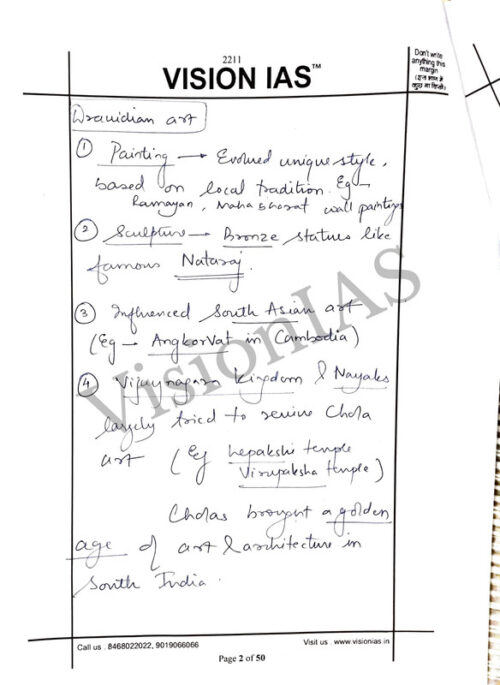 2211
VISION IAS™
Don't write
anything this
margin
(इस भाग में
कुछ ना लिखें)
Dravidian art
① Painting → Evolved unique style,
based on local tradition. Eg →
Ramayan, Mahabharat wall paintings
② Sculpture → Bronze statues like
famous Nataraj.
③ Influenced South Asian art
(Eg → AngkorVat in Cambodia)
④ Vijaynagara kingdom & Nayaks
largely tried to revive Chola
art (Eg Lepakshi temple
Virupaksha temple)
Cholas brought a golden
age of art & architecture in
South India.
VisionIAS
Call us : 8468022022, 9019066066
Visit us : www.visionias.in
Page 2 of 50